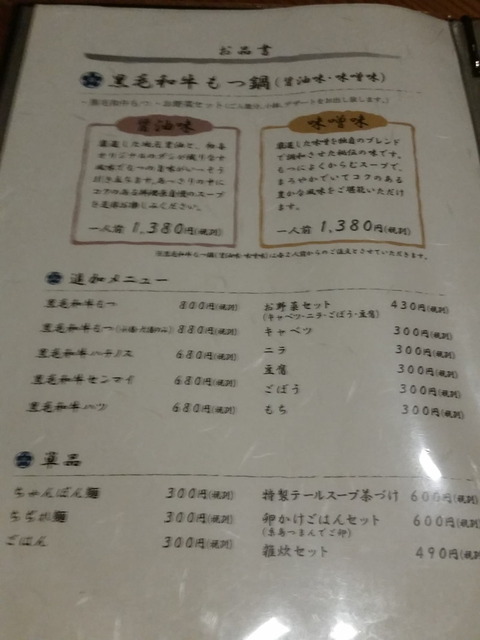 お品書
黒毛和牛もつ鍋(醤油味・味噌味)
醤油味
コクのある
一人前 1,380円(税別)
味噌味
厳選した味噌を独自のブレンド
で調和させた秘伝の味です。
もつによくからむスープで、
まろやかでいてコクのある
豊かな風味をご堪能いただけ
ます。
一人前 1,380円(税別)
追加メニュー
黒毛和牛もつ 800円(税別)
黒毛和牛もつ 880円(税別)
黒毛和牛ハチノス 680円(税別)
黒毛和牛センマイ 680円(税別)
黒毛和牛ハツ 680円(税別)
お野菜セット 430円(税別)
(キャベツ・ニラ・ごぼう・豆腐)
キャベツ 300円(税別)
ニラ 300円(税別)
豆腐 300円(税別)
ごぼう 300円(税別)
もち 300円(税別)
単品
ちゃんぽん麺 300円(税別)
ちぢれ麺 300円(税別)
ごはん 300円(税別)
特製テールスープ茶づけ 600円(税別)
卵かけごはんセット 600円(税別)
(糸島つまんでご卵)
雑炊セット 490円(税別)